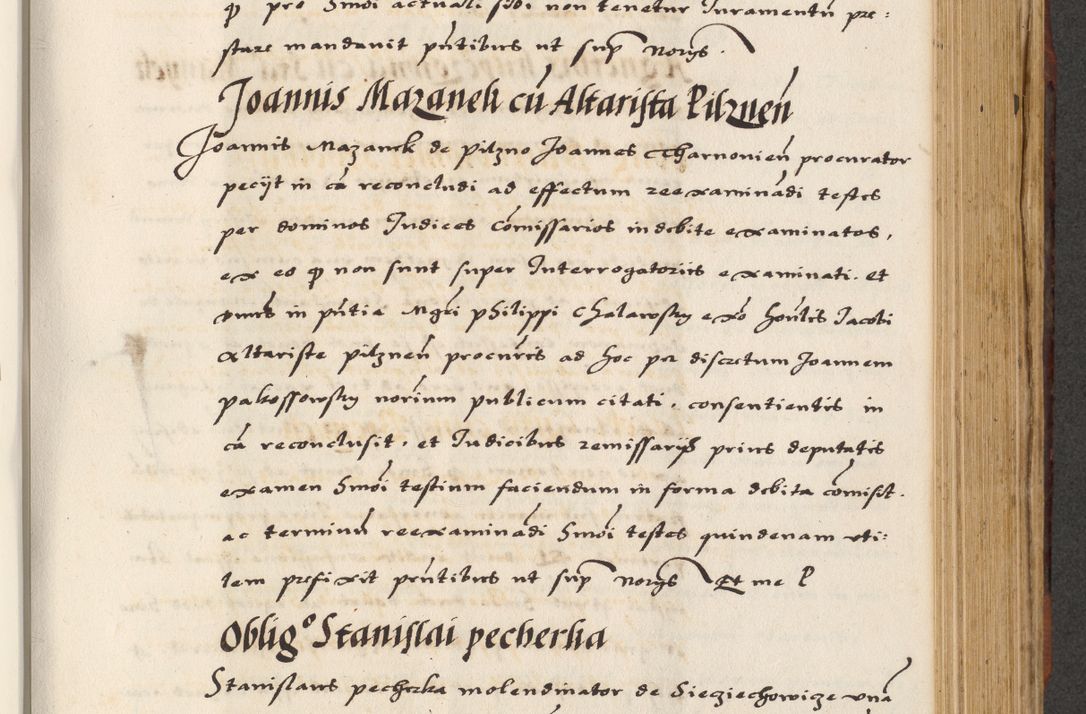 ꝙ pro Smoi actuali sibi non tenetur Iuramentū pre:
stare mandavit pñtibus ut sup Norijs.
Joannis Mazanek cū Altarista Pilznen̄
Joannis Mazanek de Pilzno Joannes Tharnovien̄ procurator
pecijt in cā reconcludi ad effectum reexaminādi testes
per dominos Iudices Cōmissarios indebite examinatos,
ex eo ꝙ non sunt super Interrogatoriis examinati. et
in pñtia Mgri Philippi Chalawsky exō honlis Iacobi
Altariste pilznen̄ procuris ad hoc per discretum Joannem
pakossowsky norium publicum citati, consentientis in
cā reconclusit, et Iudicibus remissarijs prius deputatis
examen Smōi testium faciendum in forma debita cōmisit.
ac terminū reexaminādi Smōi testes quindenam uti:
lem prefixit prñtibus ut sup Norijs Et me P
Oblig.º Stanislai pecherka
Stanislaus pecherka molendinator de Sieciechowicze unā